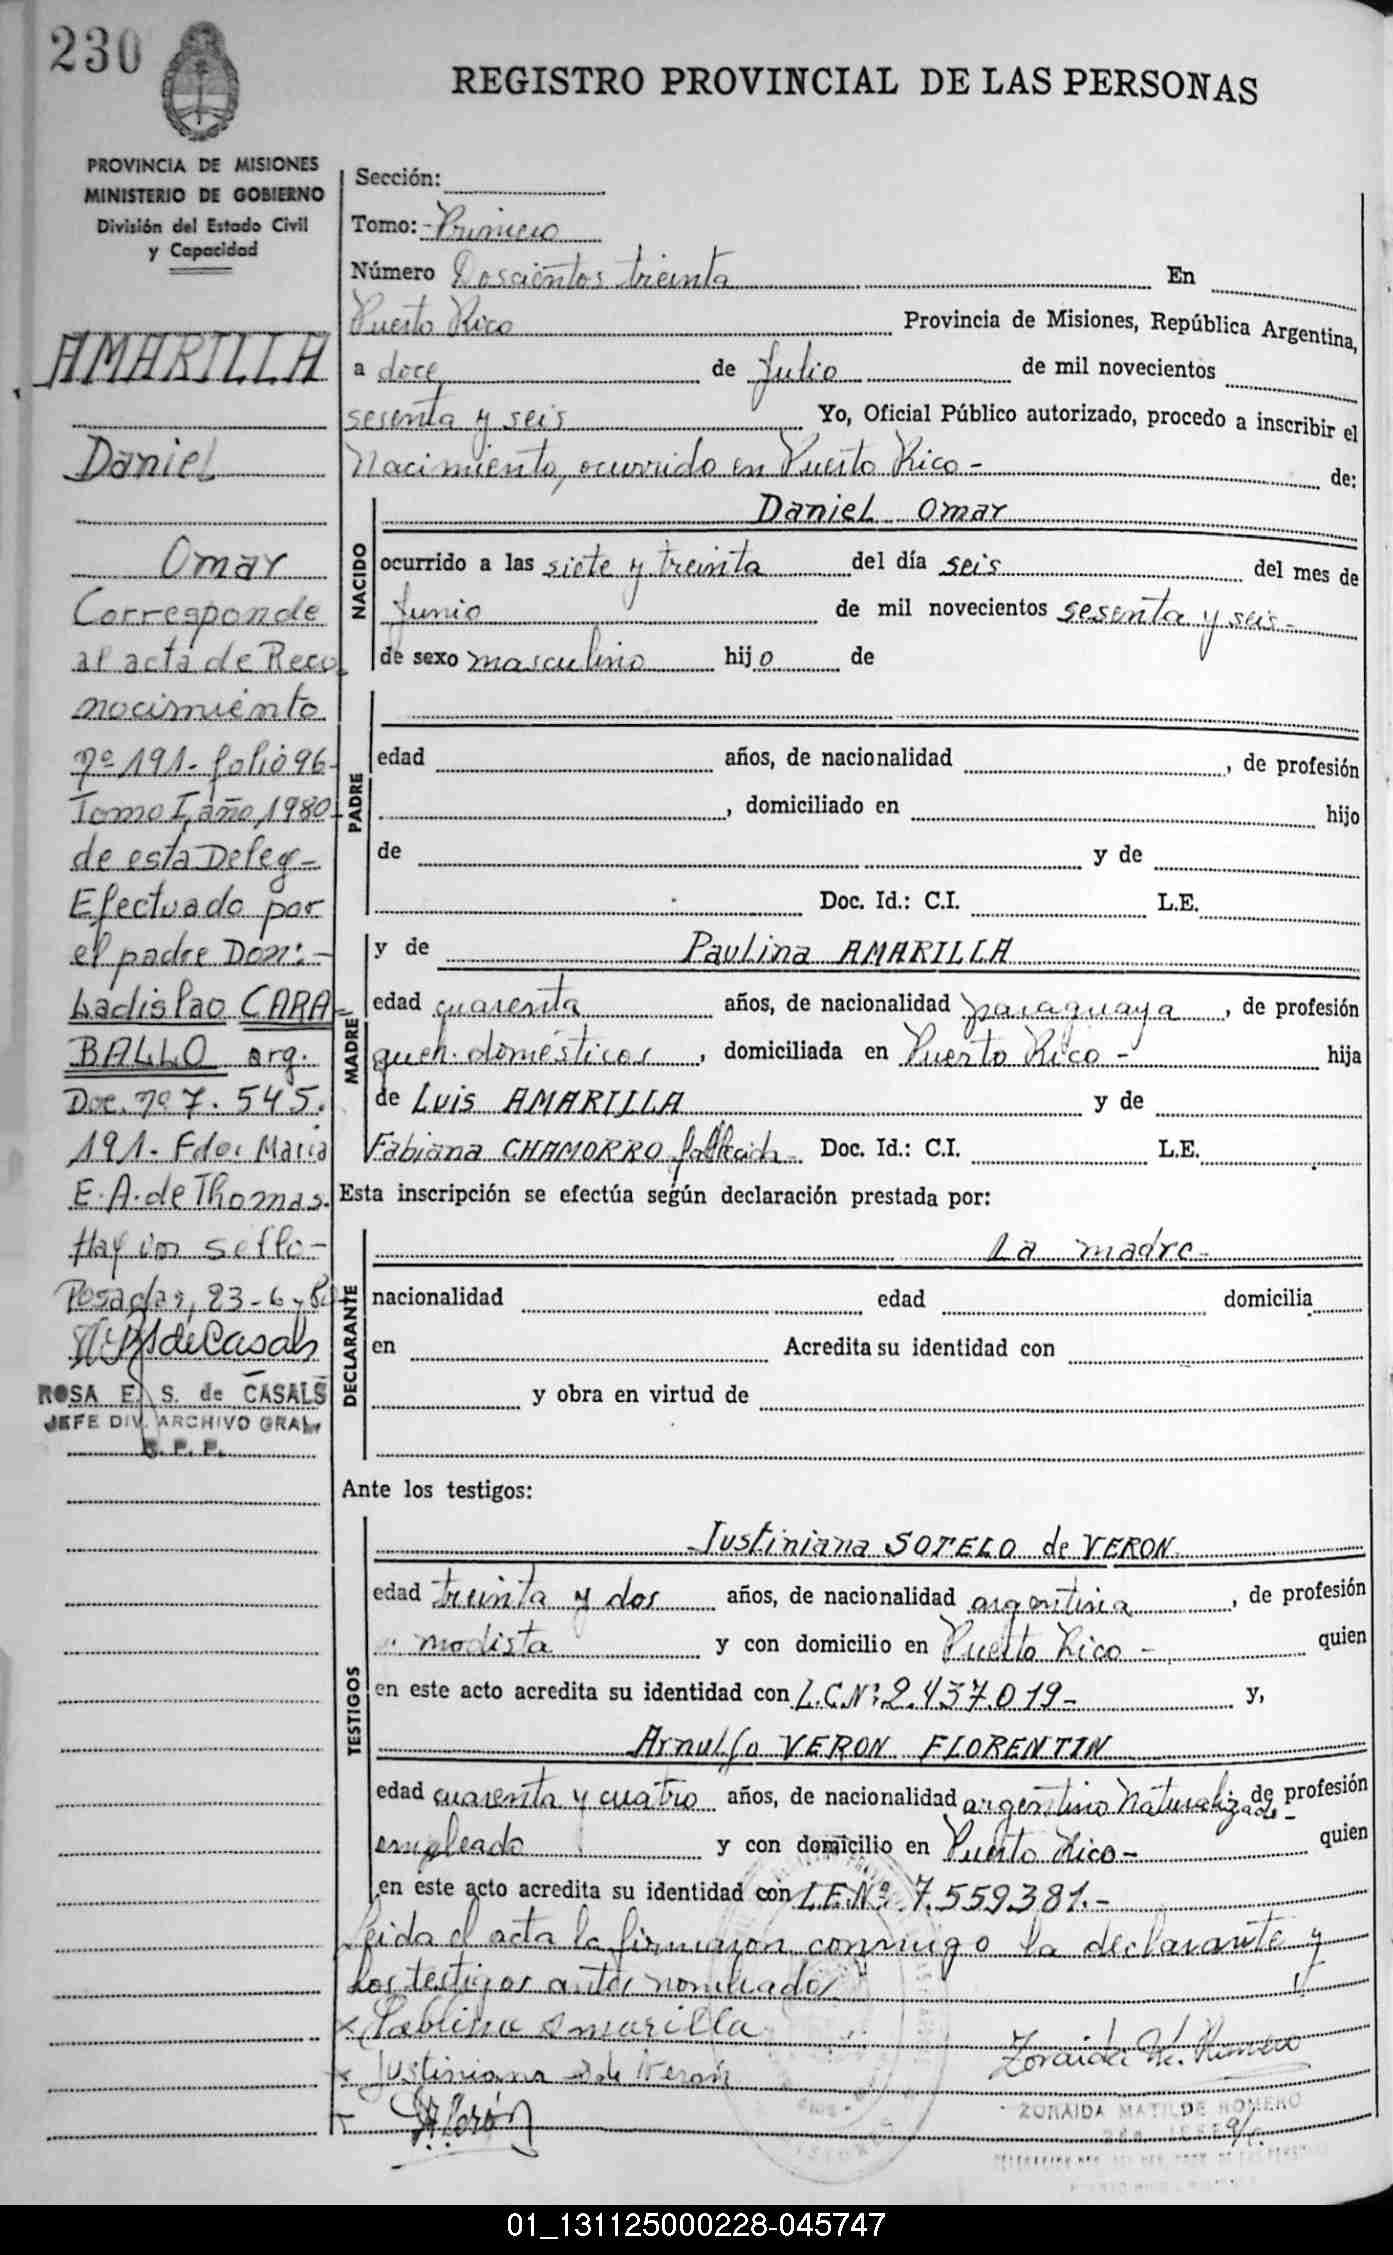 230
REGISTRO PROVINCIAL DE LAS PERSONAS
PROVINCIA DE MISIONES
MINISTERIO DE GOBIERNO
División del Estado Civil
y Capacidad
AMARILLA
Daniel
Omar
Corresponde
al acta de Reco
nocimiento
nº 191. folio 96-
Tomo I, año, 1980-
de esta Deleg-
Efectuado por
el padre Don:-
Ladislao CARA-
BALLO arg.
Doc. nº 7.545.
191. Fdo: Maria
E. A. de Thomas.
Hay un sello-
Posadas, 23-6-80
ROSA E. S. de CASALS
JEFE DIV. ARCHIVO GRAL.
Sección:
Tomo: - Primero
Número Doscientos treinta En
Puerto Rico Provincia de Misiones, República Argentina,
a doce de Julio de mil novecientos
sesenta y seis Yo, Oficial Público autorizado, procedo a inscribir el
Nacimiento, ocurrido en Puerto Rico - de:
NACIDO
Daniel Omar
ocurrido a las siete y treinta del día seis del mes de
Junio de mil novecientos sesenta y seis-
de sexo masculino hijo de
PADRE
edad años, de nacionalidad , de profesión
, domiciliado en hijo
de y de
Doc. Id.: C.I. L.E.
MADRE
y de Paulina AMARILLA
edad cuarenta años, de nacionalidad paraguaya , de profesión
queh. domésticos , domiciliada en Puerto Rico - hija
de Luis AMARILLA y de
Fabiana CHAMORRO Doc. Id.: C.I. L.E.
Esta inscripción se efectúa según declaración prestada por:
DECLARANTE
La madre-
nacionalidad edad domicilia
en Acredita su identidad con
y obra en virtud de
Ante los testigos:
TESTIGOS
Justiniana SOTELO de VERON
edad treinta y dos años, de nacionalidad argentina , de profesión
modista y con domicilio en Puerto Rico - quien
en este acto acredita su identidad con L.C.Nº: 2.437.019- y,
Arnulfo VERON FLORENTIN
edad cuarenta y cuatro años, de nacionalidad argentino Naturalizado- de profesión
empleado y con domicilio en Puerto Rico- quien
en este acto acredita su identidad con L.E.Nº: 7.559.381.-
Leida el acta la firmaron conmigo la declarante y
los testigos antes nombrados
Amarilla
Zoraida M. Romero
Justiniana S de Verón
ZORAIDA MATILDE ROMERO
01_131125000228-045747